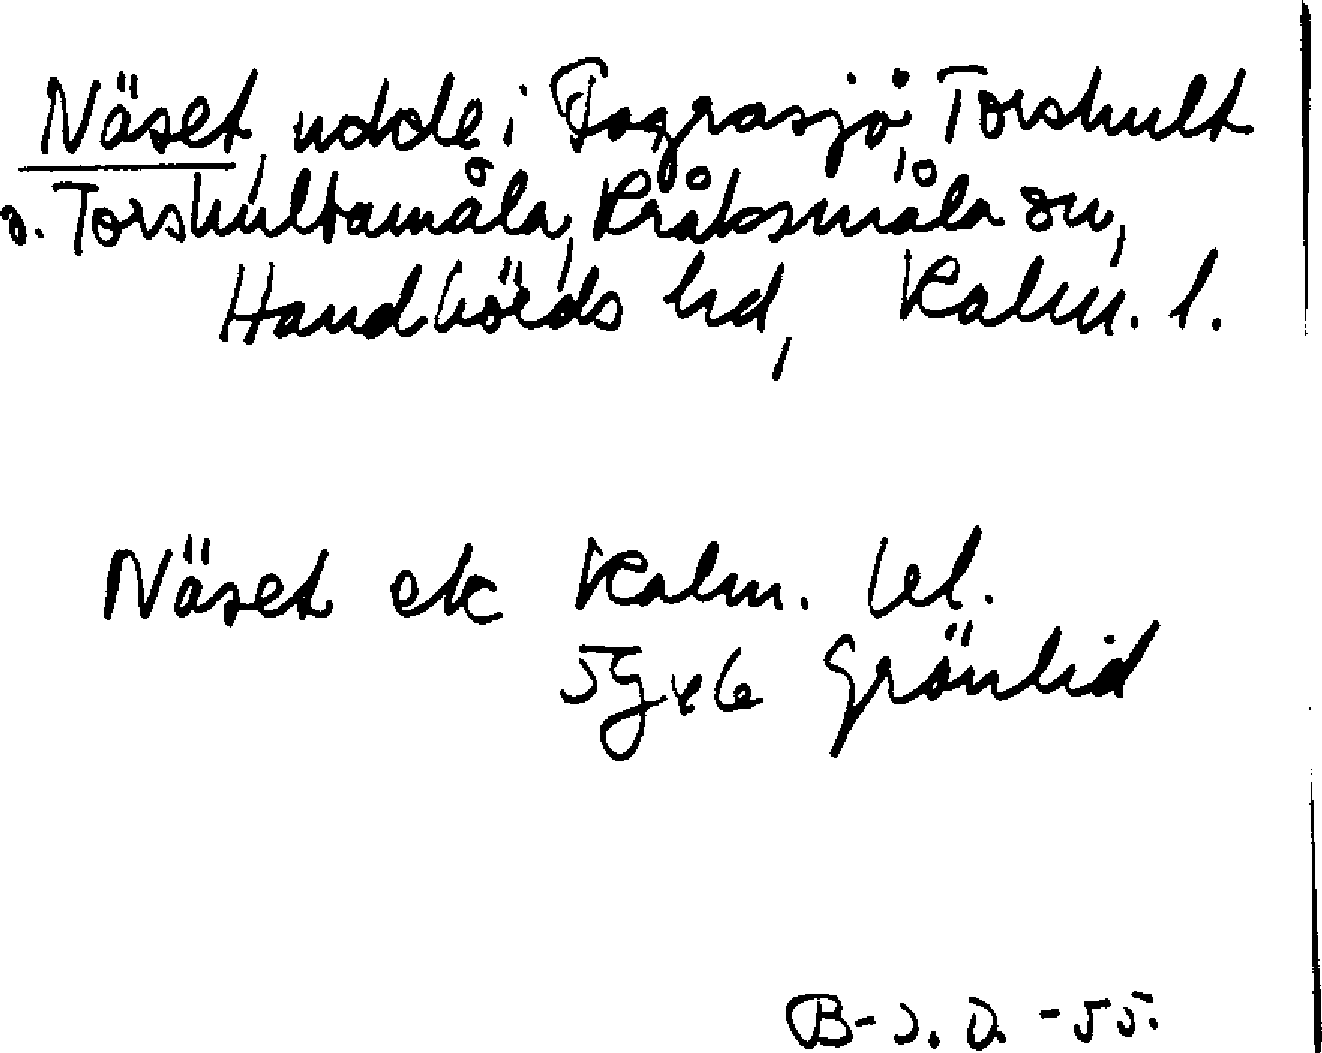 Näset, udde i Fagrasjö, Torshult
o. Torshultamåla, Kråksmåla sn,
Handbörds hd, Kalm. l.
Näset ek Kalm. bl.
5G x 6 Grönlid
B-J. D. -55.